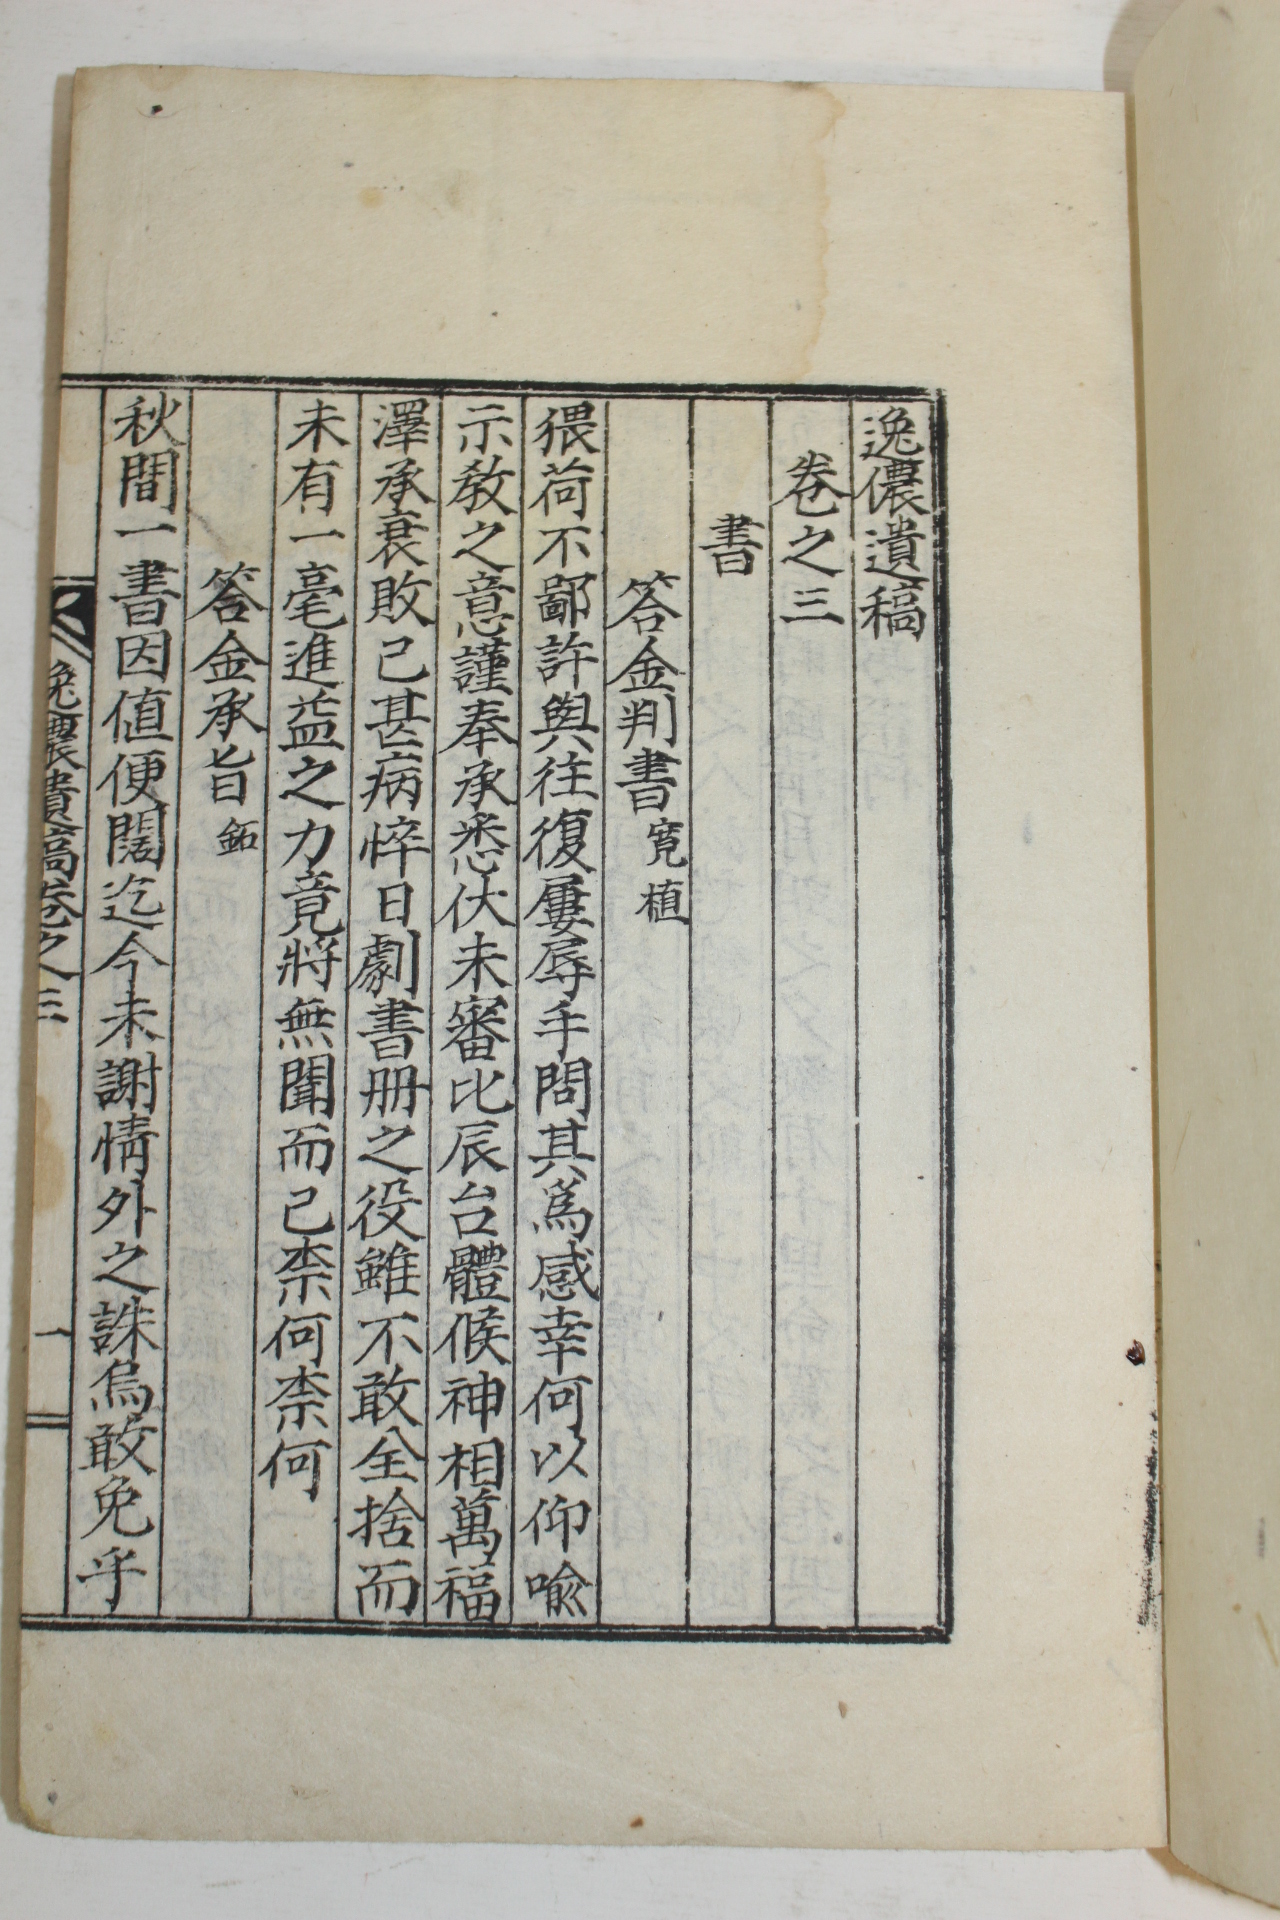 逸儂遺稿
卷之三
書
答金判書 寬植
猥荷不鄙許與往復屢辱手問其爲感幸何以仰喩
示敎之意謹奉承悉伏未審比辰台體候神相萬福
澤承衰敗已甚病悴日劇書册之役雖不敢全捨而
未有一毫進益之力竟將無聞而已柰何柰何
答金承旨 鉐
秋間一書因値便闊迄今未謝情外之誅烏敢免乎
逸農遺稿卷之三
一